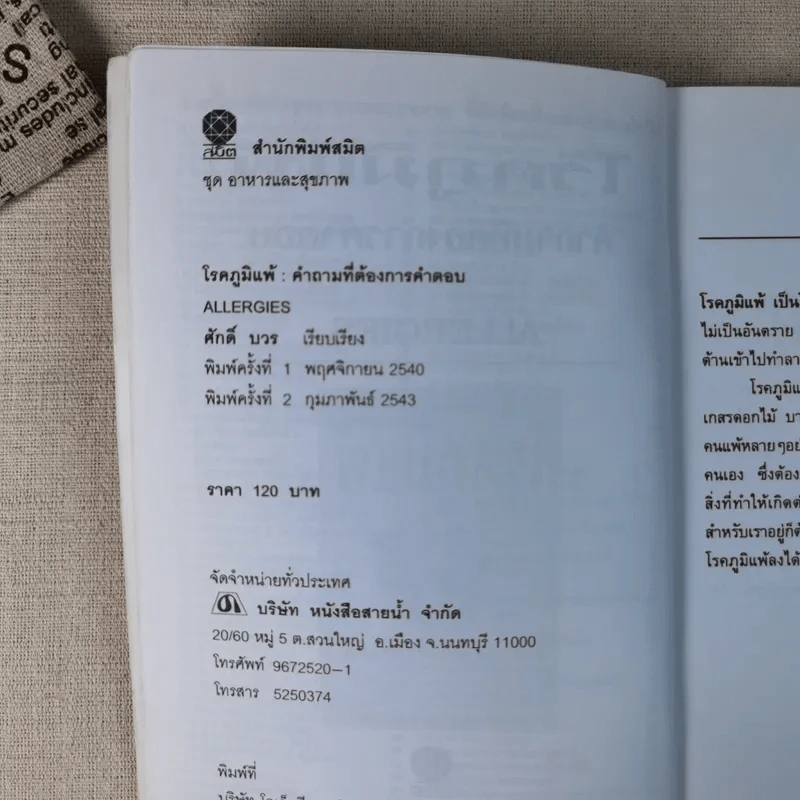 สมิต
สำนักพิมพ์สมิต
ชุด อาหารและสุขภาพ
โรคภูมิแพ้ : คำถามที่ต้องการคำตอบ
ALLERGIES
ศักดิ์ บวร เรียบเรียง
พิมพ์ครั้งที่ 1 พฤศจิกายน 2540
พิมพ์ครั้งที่ 2 กุมภาพันธ์ 2543
ราคา 120 บาท
จัดจำหน่ายทั่วประเทศ
บริษัท หนังสือสายน้ำ จำกัด
20/60 หมู่ 5 ต.สวนใหญ่ อ.เมือง จ.นนทบุรี 11000
โทรศัพท์ 9672520-1
โทรสาร 5250374
พิมพ์ที่
บริษัท
โรคภูมิแพ้ เป็น
ไม่เป็นอันตราย
ต้านเข้าไปทำลา
โรคภูมิแ
เกสรดอกไม้
คนแพ้หลายๆอย่
คนเอง ซึ่งต้อง
สิ่งที่ทำให้เกิด
สำหรับเราอยู่ก็
โรคภูมิแพ้ลงได้